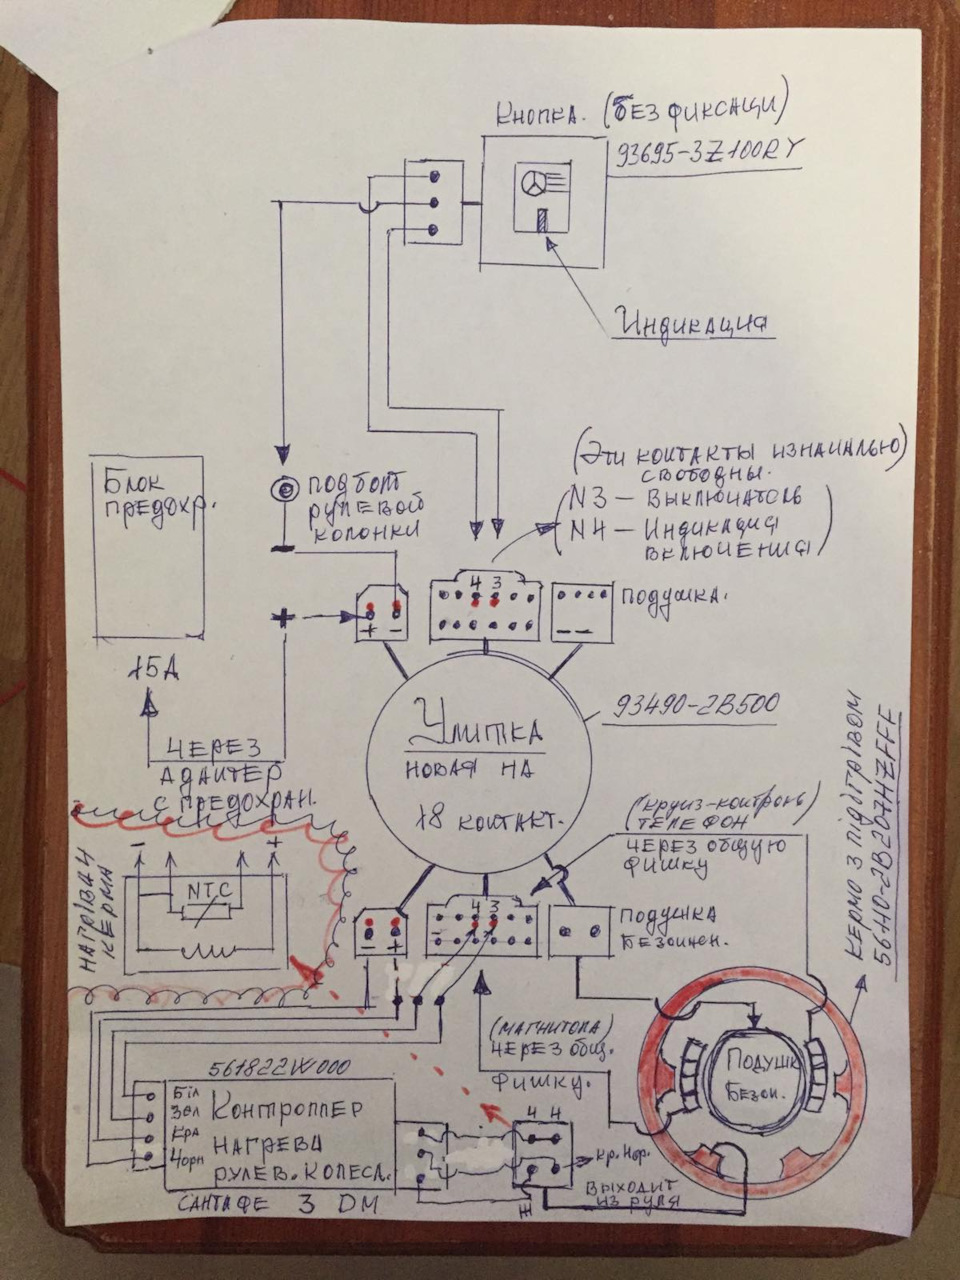 КНОПКА. (БЕЗ ФИКСАЦИ)
93695-3Z100RY
ИНДИКАЦИЯ
(ЭТИ КОНТАКТЫ ИЗНАЧАЛЬНО)
СВОБОДНЫ.
N3 – ВЫКЛЮЧАТЕЛЬ
N4 – ИНДИКАЦИЯ
ВКЛЮЧЕНИЯ
БЛОК
ПРЕДОХР.
ПОД БОЛТ
РУЛЕВОЙ
КОЛОНКИ
4 3
+ −
ПОДУШКА.
+
15А
ЧЕРЕЗ
АДАПТЕР
С ПРЕДОХРАН.
УЛИТКА
НОВАЯ НА
18 КОНТАКТ.
93490-2B500
(КРУИЗ-КОНТРОЛЬ)
ТЕЛЕФОН
ЧЕРЕЗ ОБЩУЮ
ФИШКУ
КЕРМО З ПІДІГРІВОМ
56110-2B207HZFFF
НАГРІВАЧ
КЕРМА
− +
NTC
4 3
− +
ПОДУШКА
БЕЗОПАСН.
(МАГНИТОЛА)
ЧЕРЕЗ ОБЩ.
ФИШКУ.
ПОДУШК
БЕЗОП.
561822W000
БІЛ
ЗЕЛ
КРА
ЧОРН
КОНТРОЛЛЕР
НАГРЕВА
РУЛЕВ. КОЛЕСА.
САНТАФЕ 3 DM
Ч Ч
КР. ЧОР.
ВЫХОДИТ
ИЗ РУЛЯ